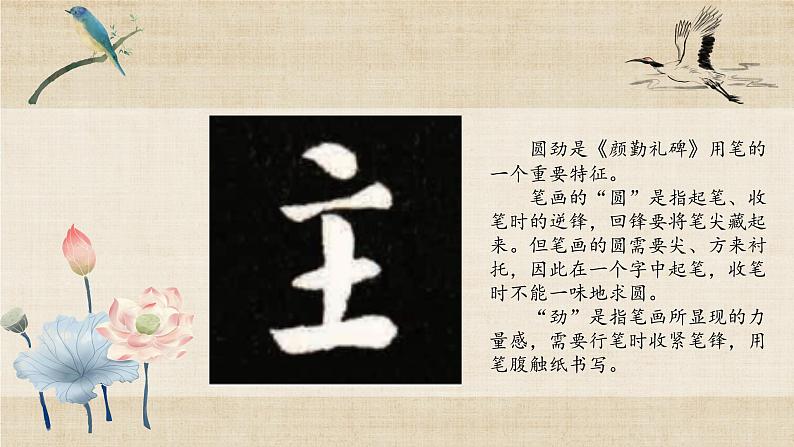 主
圆劲是《颜勤礼碑》用笔的
一个重要特征。
笔画的“圆”是指起笔、收
笔时的逆锋，回锋要将笔尖藏起
来。但笔画的圆需要尖、方来衬
托，因此在一个字中起笔，收笔
时不能一味地求圆。
“劲”是指笔画所显现的力
量感，需要行笔时收紧笔锋，用
笔腹触纸书写。